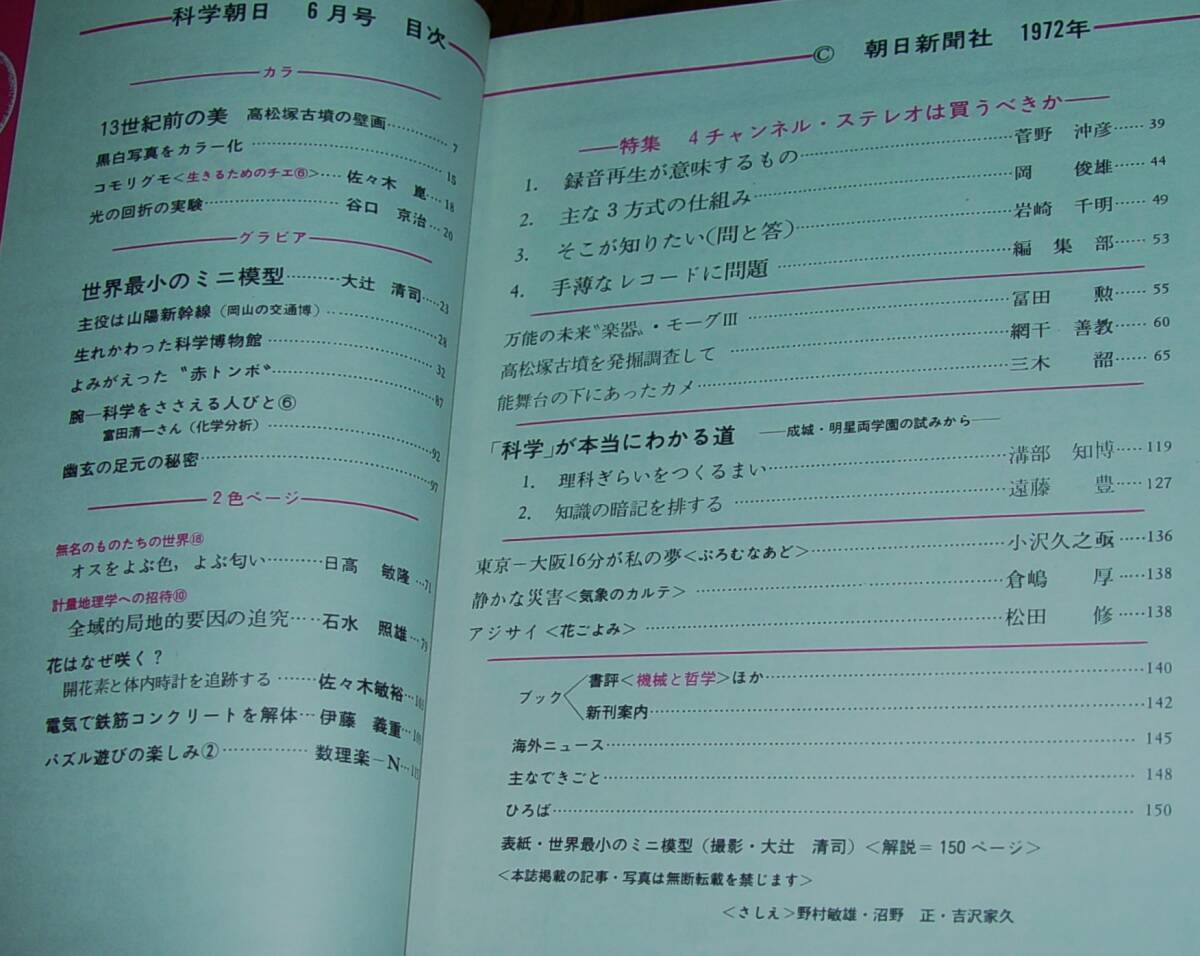 科学朝日 6月号 目次
カラー
13世紀前の美 高松塚古墳の壁画………7
黒白写真をカラー化………15
コモリグモ<生きるためのチエ⑥>……佐々木 崑…18
光の回折の実験………谷口 京治…20
グラビア
世界最小のミニ模型………大辻 清司…23
主役は山陽新幹線(岡山の交通博)………28
生れかわった科学博物館………32
よみがえった〝赤トンボ〟………87
腕―科学をささえる人びと⑥
富田清一さん(化学分析)………92
幽玄の足元の秘密………97
2色ページ
無名のものたちの世界⑱
オスをよぶ色,よぶ匂い………日高 敏隆…71
計量地理学への招待⑩
全域的局地的要因の追究……石水 照雄…79
花はなぜ咲く?
開花素と体内時計を追跡する……佐々木敏裕
電気で鉄筋コンクリートを解体…伊藤 義重
パズル遊びの楽しみ②………数理楽-N
© 朝日新聞社 1972年
―特集 4チャンネル・ステレオは買うべきか―
1. 録音再生が意味するもの………菅野 沖彦……39
2. 主な3方式の仕組み………岡 俊雄……44
3. そこが知りたい(問と答)………岩崎 千明……49
4. 手薄なレコードに問題………編集部……53
万能の未来〝楽器〟・モーグⅢ………冨田 勲……55
高松塚古墳を発掘調査して………網干 善教……60
能舞台の下にあったカメ………三木 韶……65
「科学」が本当にわかる道 ―成城・明星両学園の試みから―
1. 理科ぎらいをつくるまい………溝部 知博……119
2. 知識の暗記を排する………遠藤 豊……127
東京-大阪16分が私の夢<ぷろむなあど>………小沢久之亟……136
静かな災害<気象のカルテ>………倉嶋 厚……138
アジサイ<花ごよみ>………松田 修……138
ブック 書評<機械と哲学>ほか………140
新刊案内………142
海外ニュース………145
主なできごと………148
ひろば………150
表紙・世界最小のミニ模型(撮影・大辻 清司)<解説=150ページ>
<本誌掲載の記事・写真は無断転載を禁じます>
<さしえ>野村敏雄・沼野 正・吉沢家久